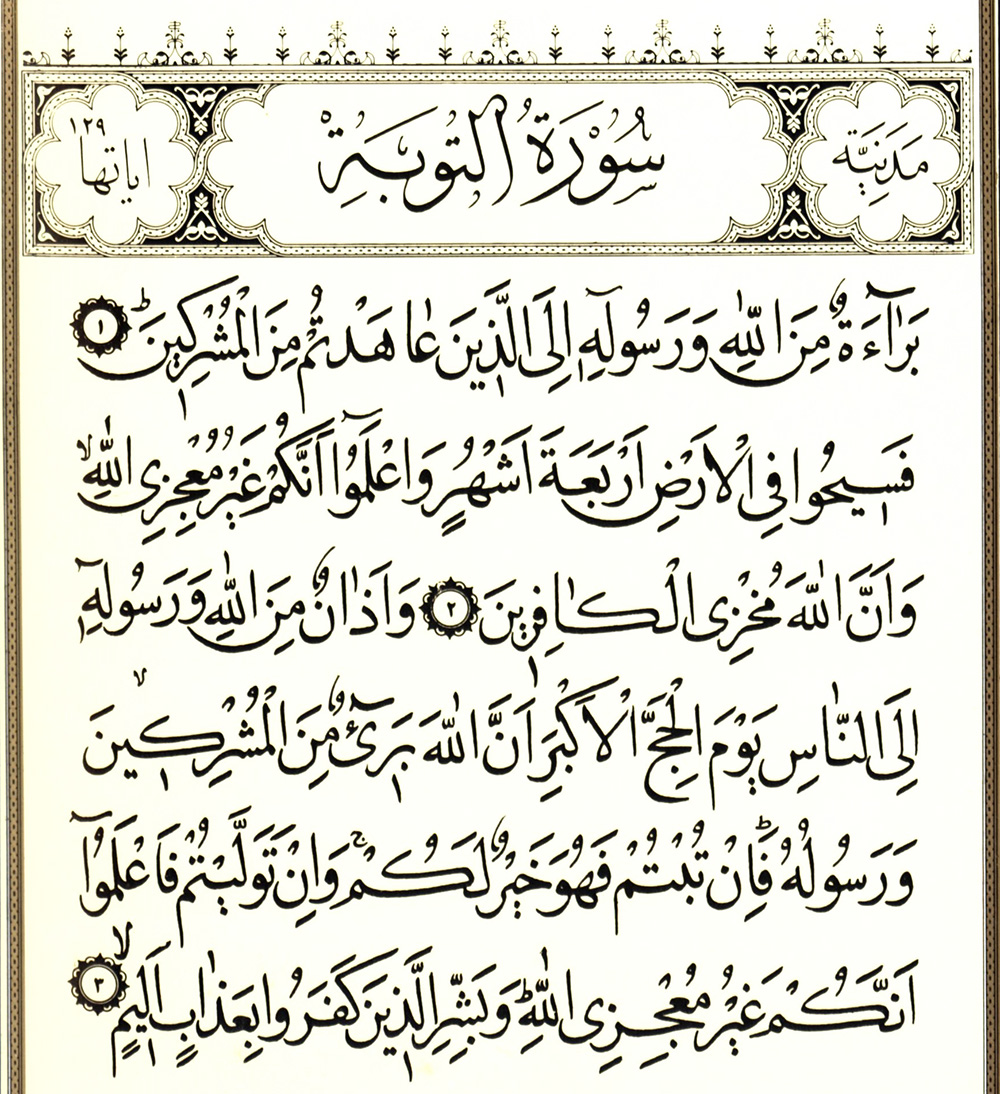 مَدَنِيَّة
سُورَةُ التَّوْبَةِ
اياتها ١٢٩
بَرَآءَةٌ مِنَ اللّٰهِ وَرَسُولِه۪ٓ اِلَى الَّذ۪ينَ عَاهَدْتُمْ مِنَ الْمُشْرِك۪ينَۜ ١
فَس۪يحُوا فِي الْاَرْضِ اَرْبَعَةَ اَشْهُرٍ وَاعْلَمُٓوا اَنَّكُمْ غَيْرُ مُعْجِزِي اللّٰهِۙ
وَاَنَّ اللّٰهَ مُخْزِي الْكَافِر۪ينَ ٢ وَاَذَانٌ مِنَ اللّٰهِ وَرَسُولِه۪ٓ
اِلَى النَّاسِ يَوْمَ الْحَجِّ الْاَكْبَرِ اَنَّ اللّٰهَ بَر۪ٓيءٌ مِنَ الْمُشْرِك۪ينَۙ
وَرَسُولُهُۜ فَاِنْ تُبْتُمْ فَهُوَ خَيْرٌ لَكُمْۚ وَاِنْ تَوَلَّيْتُمْ فَاعْلَمُٓوا
اَنَّكُمْ غَيْرُ مُعْجِزِي اللّٰهِۜ وَبَشِّرِ الَّذ۪ينَ كَفَرُوا بِعَذَابٍ اَل۪يمٍۙ ٣